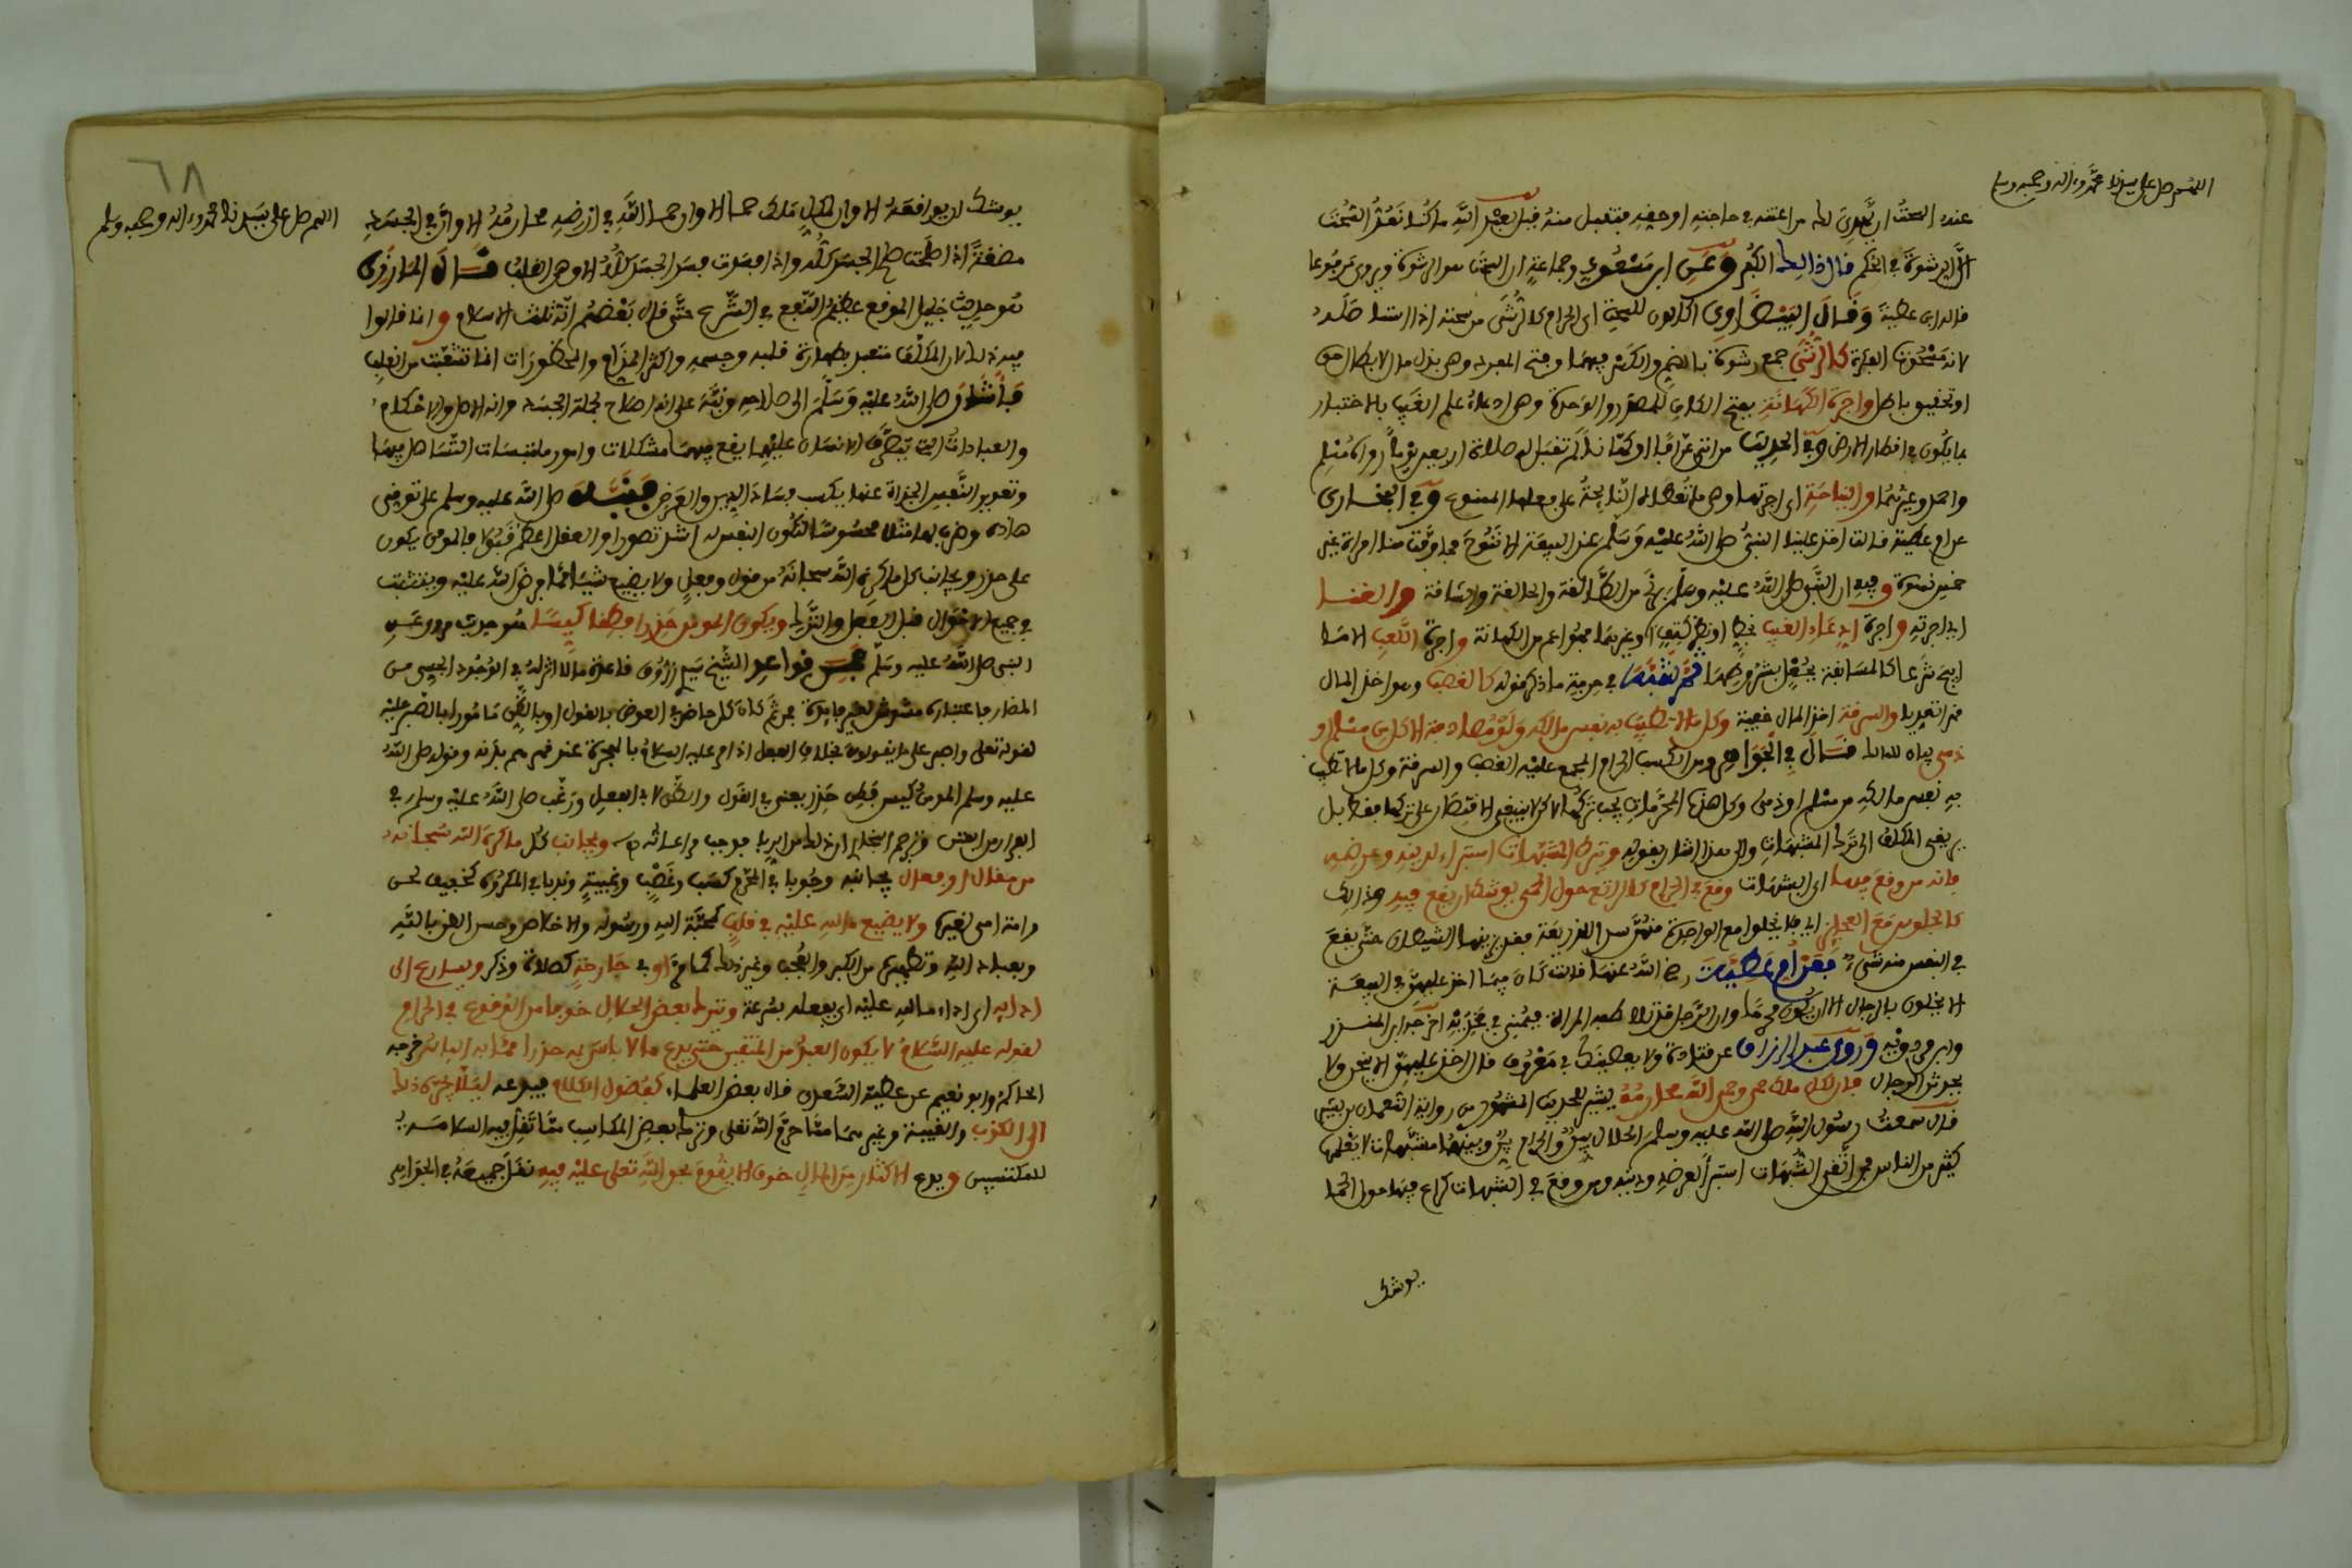 اللهم صل على سيدنا محمد وءاله وصحبه وسلم
عنده السحت ان يهدي لك من اعنته في حاجته او حقه فتقبل منه قيل لعبد الله ما كنا نعد السحت
الا الرشوة في الحكم فال ذالك الكفر وعن ابن مسعود وجماعة ان السحت هو الرشوة وروى مرفوعا
قاله ابن عطية وقال البيضاوي اكالون للسحت اي الحرام كالرشى من سحته اذا استاصله
لانه مسحوت البركة كالرشى جمع رشوة بالضم والكسر فيهما وفتح المفرد وهي بذل مال لابطال حق
او تحقيق باطل واجرة الكهانة بفتح الكاف للمصدر والوحدة وهي ادعاء علم الغيب بالاختبار
بما يكون في اقطار الارض وفي الحديث من اتى عرافا او كاهنا لم تقبل له صلاة اربعين يوما رواه مسلم
واحمد وغيرهما والنياحة اي اجرتها وهي ما تعطاه النائحة على فعلها الممنوع وفي البخاري
عن ام عطية قالت اخذ علينا النبي صلى الله عليه وسلم عند البيعة الا ننوح فما وفت منا امراة غير
خمس نسوة وفيه ان النبي صلى الله عليه وسلم برئ من الصالقة والحالقة والشاقة والغنا
اي اجرته واجرة ادعاء الغيب بخط او نظر كتف او غيرهما فهو اعم من الكهانة واجرة اللعب الا ما
ابيح شرعا كالمسابقة بجعل بشروطها
ثم اتعديا والسرقة اخذ المال خفية وكل ما لا تطيب به نفس مالكه ولو مصادفة الا كان مسلم او
ذمي قاله مالك قال في الجواهر ومن الكسب الحرام المجمع عليه الغصب والسرقة وكل ما لا تطيب
به نفس مالكه من مسلم او ذمي وكل هذه المحرمات يجب تركها لاكن لا ينبغي الاقتصار على تركها فقط بل
يرتقي المكلف الى ترك المشتبهات والى هذا اشار بقوله وترك المشبهات استبراء لدينه وعرضه
فانه من وقع فيها اي الشبهات وقع في الحرام كالراتع حول الحمى يوشك ان يقع فيه وذالك
حتى يقع
في النفس منه شيء فعن ام عطية رضي الله عنها قالت كان فيما اخذ عليهن في البيعة
الا يخلون بالرجال الا ان يكون محرما
وروى عبد الرزاق عن قتادة ولا يعصينك في معروف قال اخذ عليهن الا ينحن ولا
يحدثن الرجال فان لكل ملك حمى وحمى الله محارمه يشير للحديث المشهور من رواية النعمان بن بشير
قال سمعت رسول الله صلى الله عليه وسلم الحلال بين والحرام بين وبينهما مشبهات لا يعلمها
كثير من الناس فمن اتقى الشبهات استبرا لعرضه ودينه ومن وقع في الشبهات كراع فيها حول الحما
يوشك
٦٨
اللهم صل على سيدنا محمد وءاله وصحبه وسلم
يوشك ان يواقعه الا وان لكل ملك حما الا وان حما الله في ارضه محارمه الا وان في الجسد
مضغة اذا صلحت صلح الجسد كله واذا فسدت فسد الجسد كله الا وهي القلب قال المازري
هو حديث جليل الموقع عظيم النفع في الشرع حتى قال بعضهم انه ثلث الاسلام وانما قالوا
فيه ذلك لان المكلف متعبد بطهارة قلبه وجسمه واكثر المذام والمحظورات انما تنبعث من القلب
فاشار صلى الله عليه وسلم الى صلاحه ونبه على انه اصلاح لجملة الجسد وانه الاصل والاحكام
والعبادات التي يتصرف الانسان عليها يقع فيها مشكلات وامور ملتبسات التساهل فيها
وتعويد النفس الجراة عنها يكسب فساد الدين والعرض فنبه صلى الله عليه وسلم على توقي
هاذه وضرب لها مثلا محسوسا لتكون النفس له اشد تصورا والعقل اعظم قبولا فالمومن يكون
على حذر ويجانب كل ما كره الله سبحانه من قول وفعل ولا يضيع شيئا مما فرض الله عليه ويتثبت
في جميع الاحوال قبل الفعل والترك ويكون المومن حذرا فطنا كيسا هو حديث مروي عن
النبي صلى الله عليه وسلم فمن قواعد الشيخ سيدي زروق قاعدة ما لا اثر له في الوجود الحسي من
المضار فاعتباره مشوش لغير فائدة فمن ثم كان كل ماض في العرض بالقول او بالظن مامورا بالصبر عليه
لقوله تعلى واصبر على ما يقولون بخلاف الفعل اذ امر عليه السلام بالهجرة عند قصدهم بذلك وقوله صلى الله
عليه وسلم المومن كيس فطن حذر يعني في القول والظن لا في الفعل ورغب صلى الله عليه وسلم في
الفرار من الفتن وترجم البخاري ان ذلك من الدين ويجانب كل ما كره الله سبحانه
من مقال او فعال يجانبه وجوبا في المحرم كسب وغصب وغيبة وندبا في المكروه كتخفيف لحي
ولا يضيع ما لله عليه في قلب كمحبة الله ورسوله والاخلاص وحسن الظن بالله
وبعباد الله وتطهيره من الكبر والعجب وغير ذلك كما مر او في جارحة كصلاة وذكر ويسارع الى
اداء اي اداء ما لله عليه اي يفعله بسرعة ويترك بعض الحلال خوفا من الوقوع في الحرام
لقوله عليه السلام لا يكون العبد من المتقين حتى يدع ما لا باس به حذرا مما به الباس خرجه
الحاكم وابو نعيم عن عطية السعدي قال بعض العلماء كفضول الكلام فيدعه ليلا يجره ذلك
الى الكذب والغيبة وغيرهما مما حرم الله تعلى وترك بعض المكاسب مما تقل فيه السلامة
للمكتسبين ويدع الاكثار من الحلال خوف الا يقوم بحق الله تعلى عليه فيه نقل جميعه في الجواهر